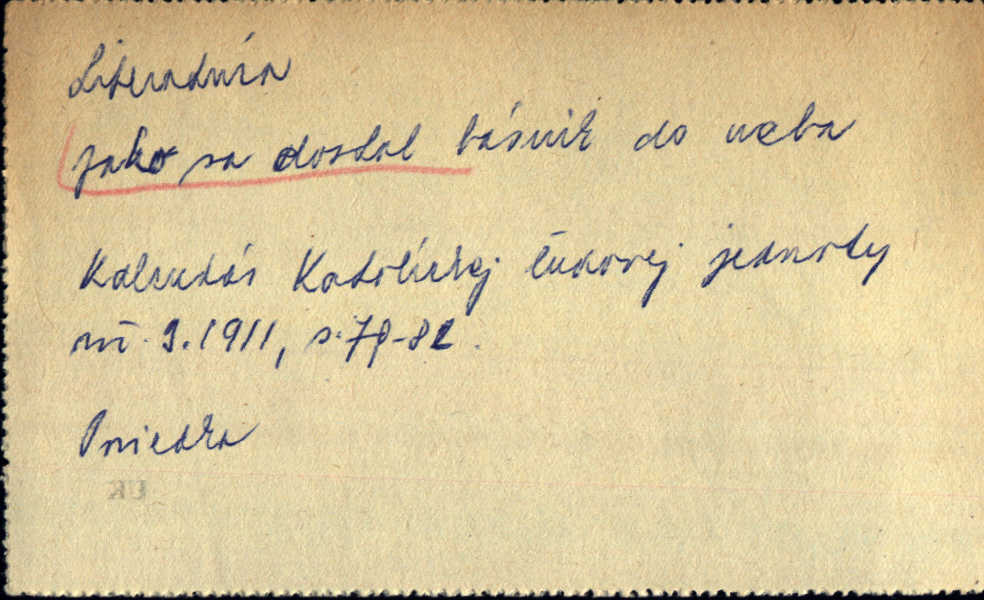 Literatúra
Jako sa dostal básnik do neba
Kalendár Katolíckej ľudovej jednoty
roč. 9. 1911, s. 79-82.
Poviedka
UK